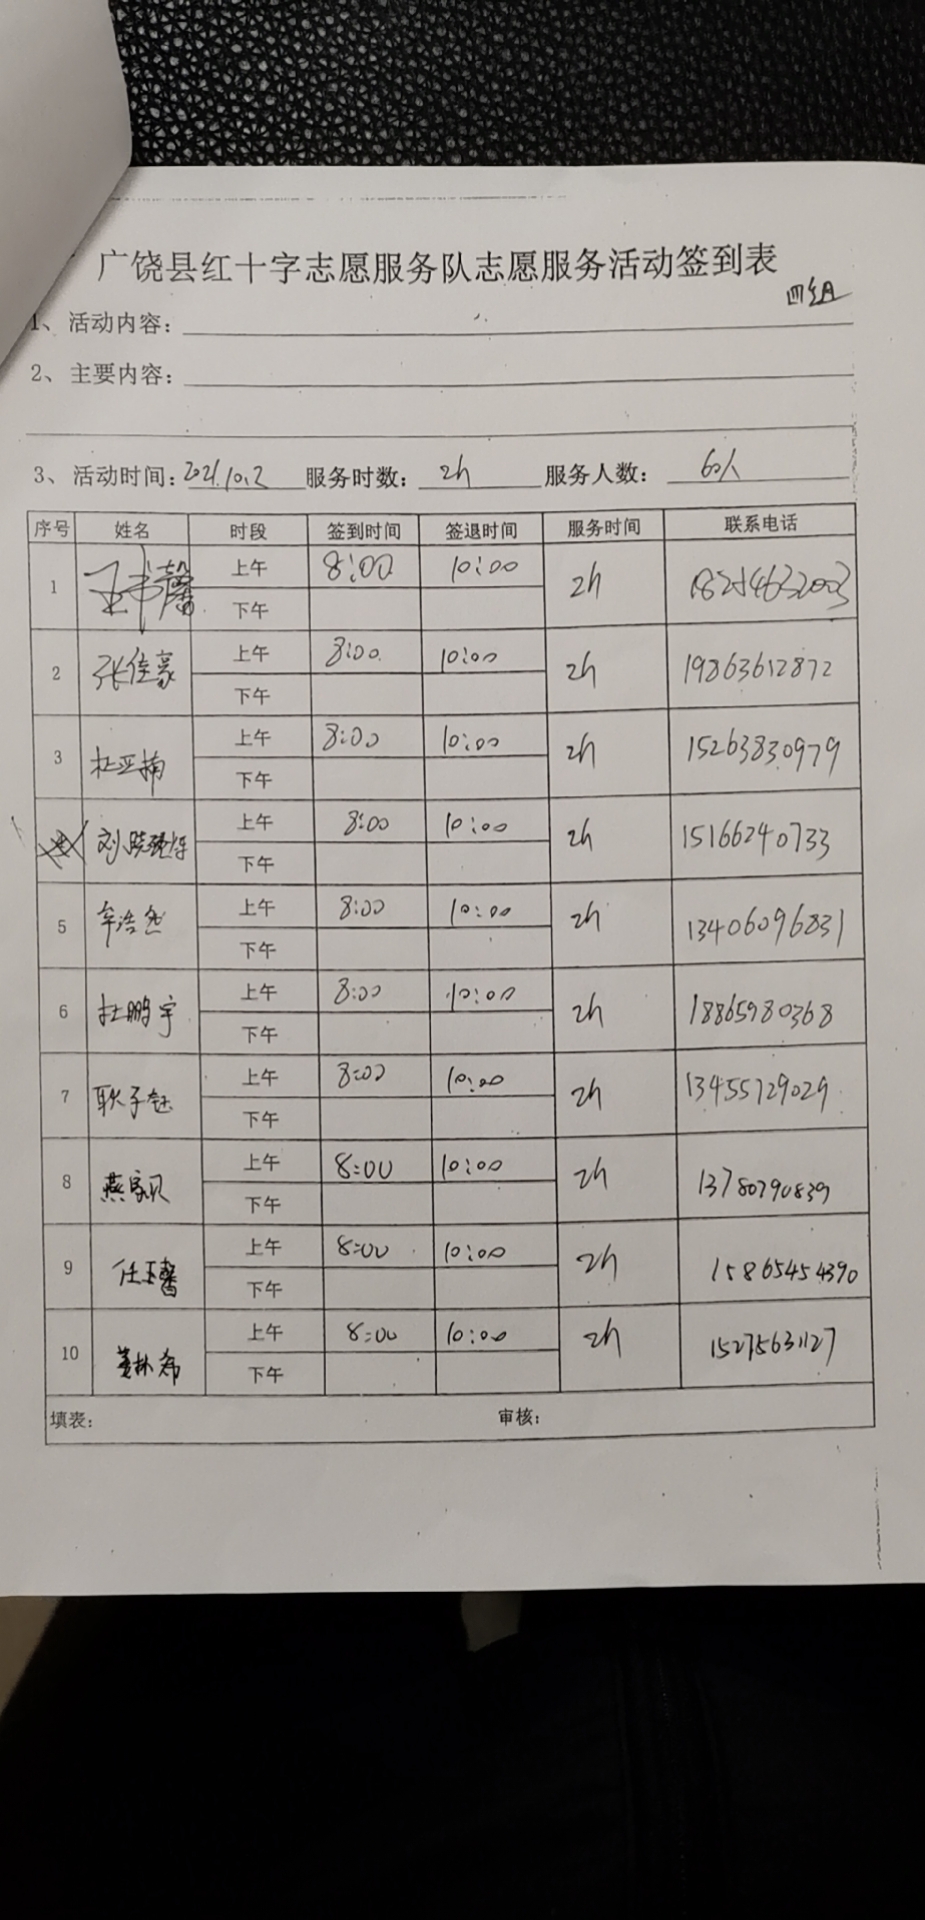 广饶县红十字志愿服务队志愿服务活动签到表
四组
1、活动内容：
2、主要内容：
3、活动时间：2021.10.2 服务时数：2h 服务人数：60人
序号 姓名 时段 签到时间 签退时间 服务时间 联系电话
1 王书馨 上午 8:00 10:00 2h 18254632003
下午
2 张佳豪 上午 8:00 10:00 2h 19863612872
下午
3 杜亚楠 上午 8:00 10:00 2h 15263830979
下午
刘晓 上午 8:00 10:00 2h 15166240733
下午
5 牟浩然 上午 8:00 10:00 2h 13406096831
下午
6 杜鹏宇 上午 8:00 10:00 2h 18865980368
下午
7 耿子钰 上午 8:00 10:00 2h 13455729029
下午
8 燕家贝 上午 8:00 10:00 2h 13780790839
下午
9 任玉馨 上午 8:00 10:00 2h 15865454390
下午
10 姜林希 上午 8:00 10:00 2h 15275631127
下午
填表： 审核：